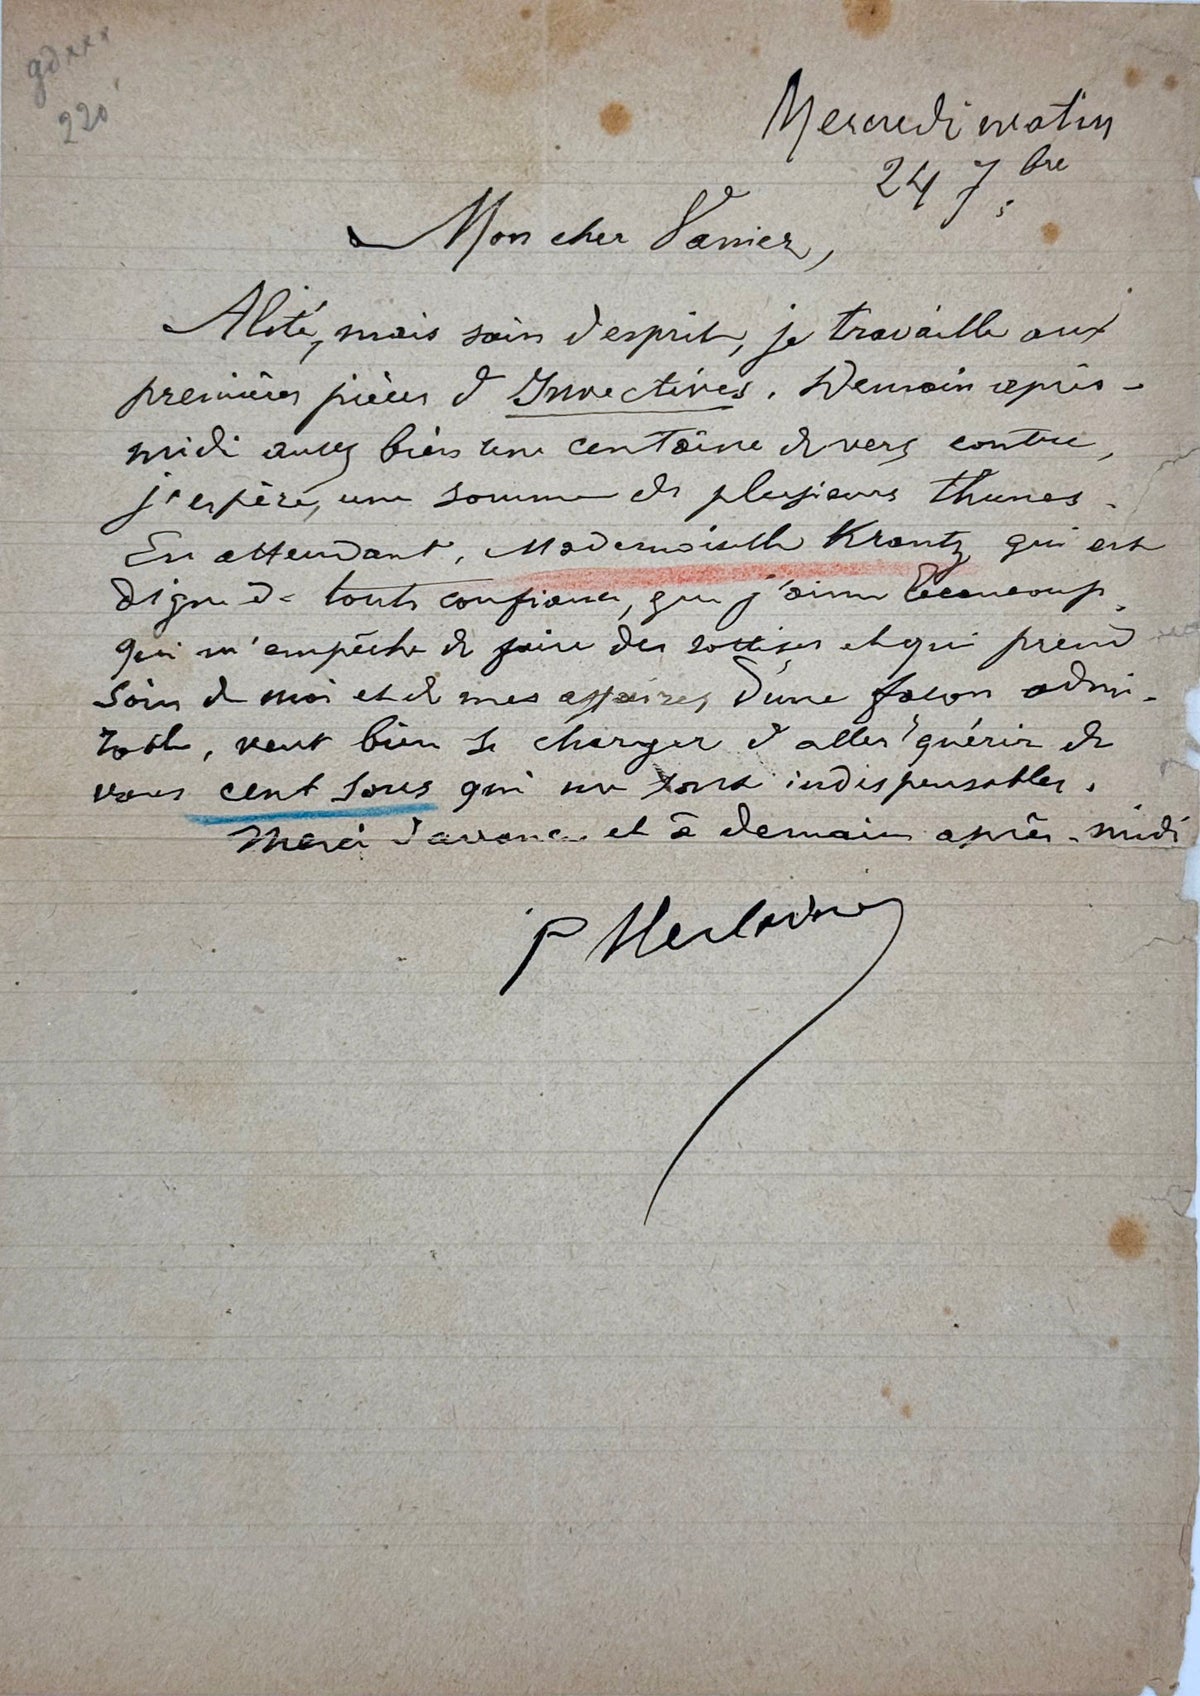 gd xxx
220
Mercredi matin
24 7bre
Mon cher Vanier,
Alité, mais sain d'esprit, je travaille aux
premières pièces d'Invectives. Demain après-
midi aurez bien une centaine de vers contre,
j'espère, une somme de plusieurs thunes.
En attendant, Mademoiselle Krantz qui est
digne de toute confiance, que j'aime beaucoup,
qui m'empêche de faire des sottises et qui prend
soin de moi et de mes affaires d'une façon admi-
rable, veut bien se charger d'aller quérir de
vous cent sous qui me sont indispensables.
Merci d'avance et à demain après-midi
P Verlaine